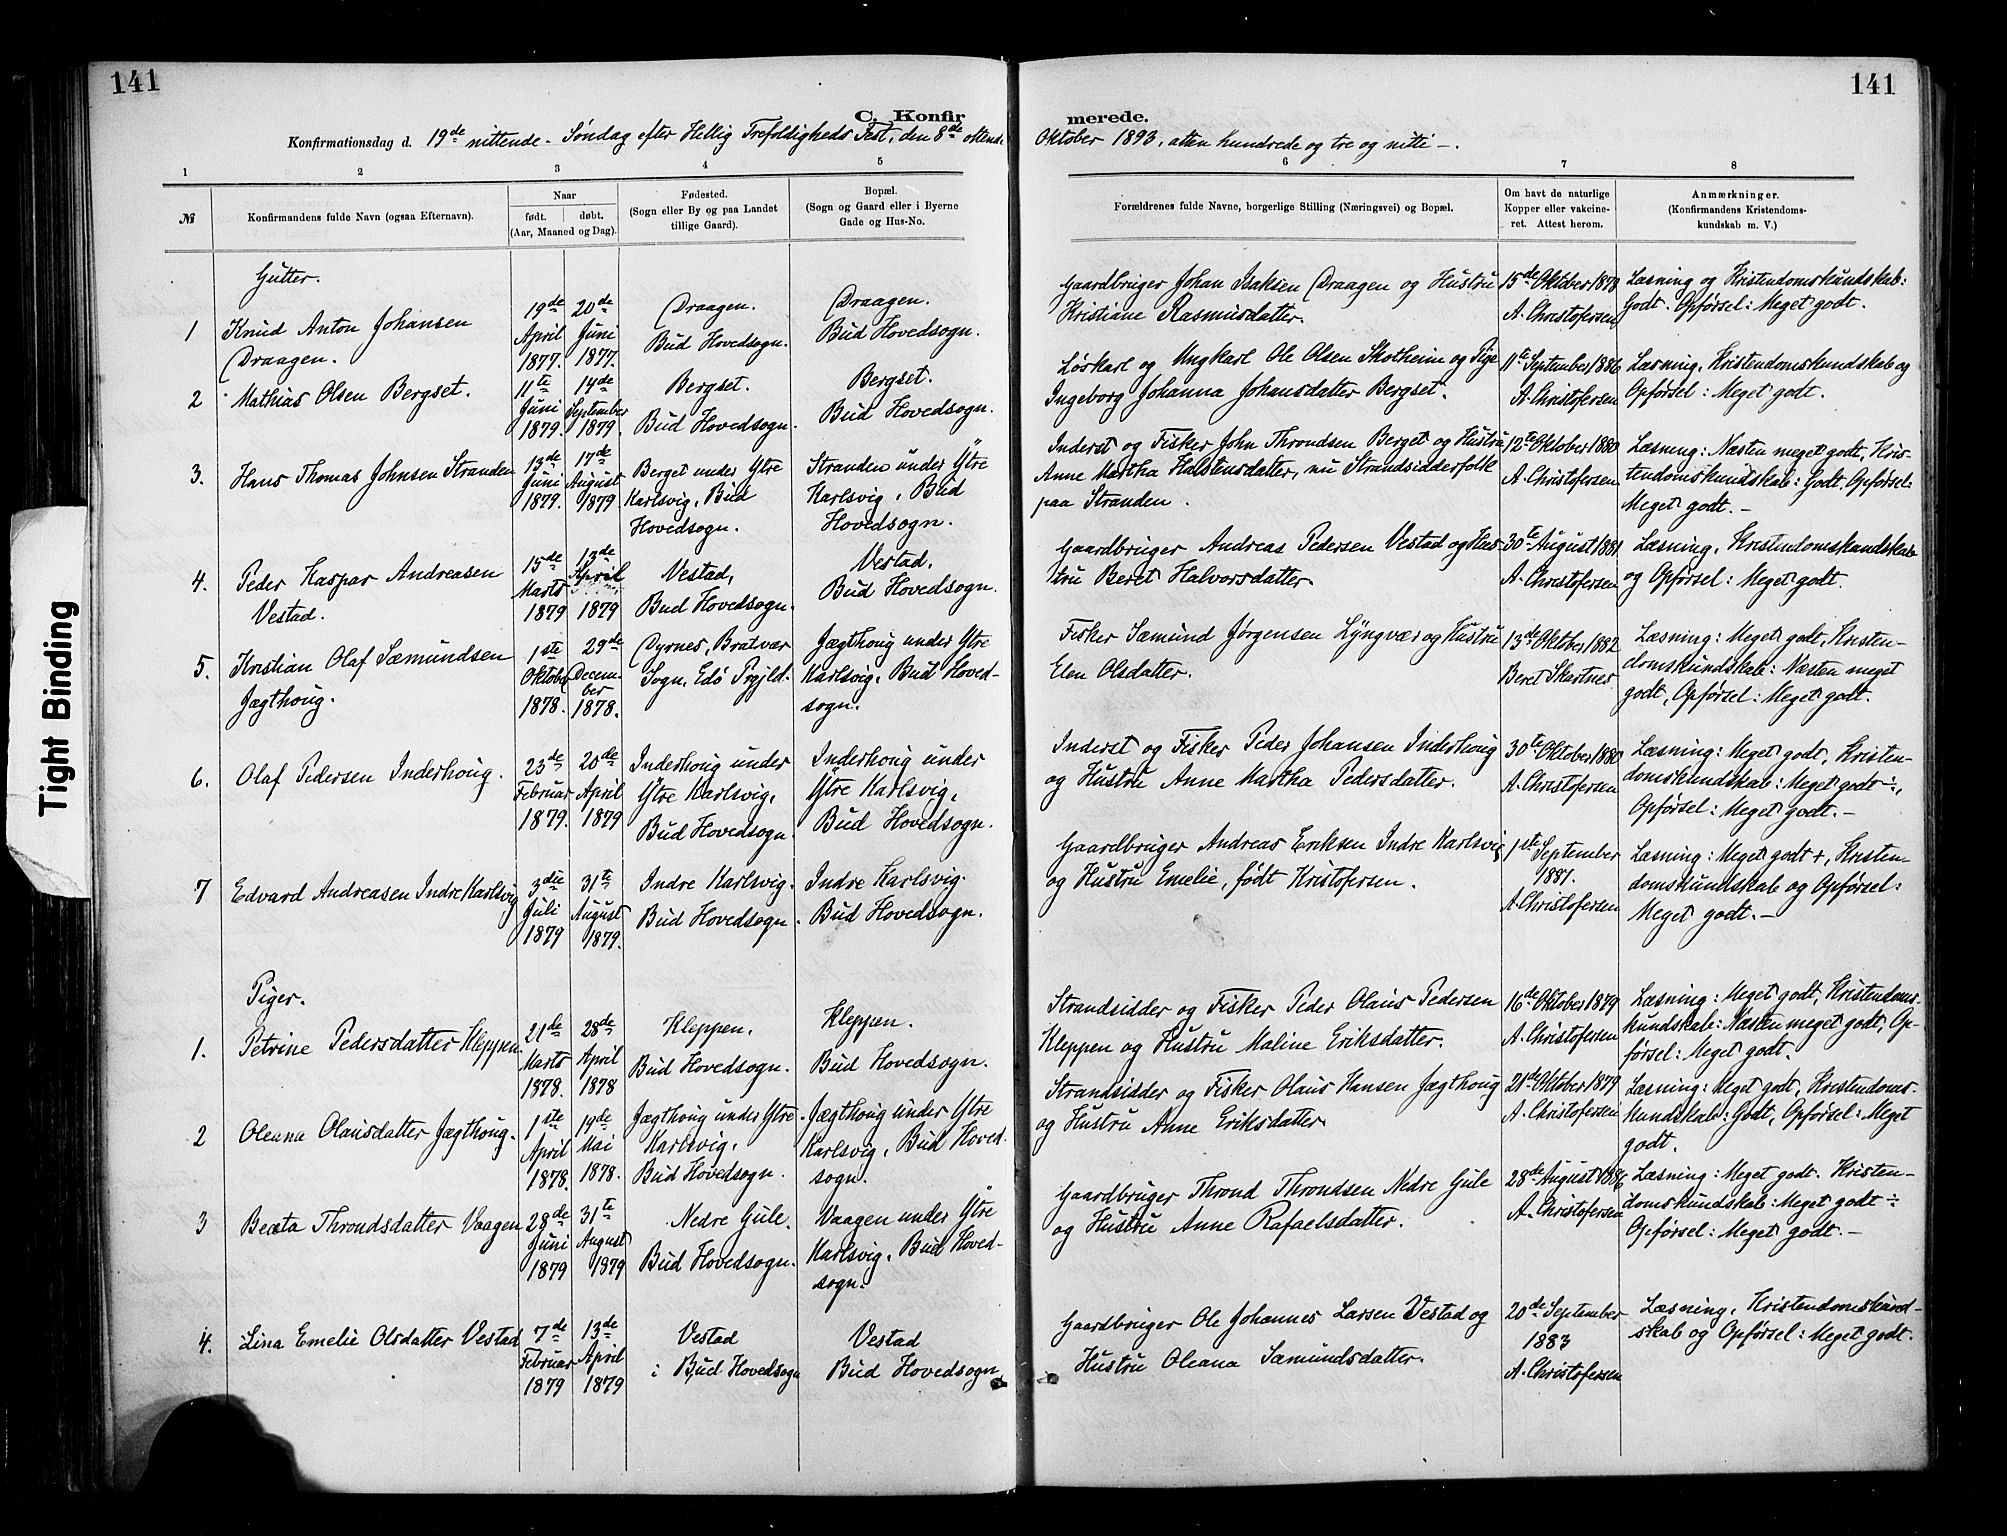 141
141
C. Konfir
merede.
Konfirmationsdag d. 19de nittende - Søndag efter Hellig Trefoldigheds Fest, den 8de ottende
Oktober 1893, atten hundrede og tre og nitti -.
1 2 3 4 5
6 7 8
№
Konfirmandens fulde Navn (ogsaa Efternavn).
Naar
født. døbt.
(Aar, Maaned og Dag).
Fødested.
(Sogn eller By og paa Landet
tillige Gaard).
Bopæl.
(Sogn og Gaard eller i Byerne
Gade og Hus-No.
Forældrenes fulde Navne, borgerlige Stilling (Næringsvei) og Bopæl.
Om havt de naturlige
Kopper eller vakcine-
ret. Attest herom.
Anmærkninger.
(Konfirmandens Kristendoms-
kundskab m. V.)
Gutter.
1
Knud Anton Johansen
Draagen.
19de
April
1877.
20de
Juni
1877.
Draagen.
Bud Hovedsogn.
Draagen.
Bud Hovedsogn.
Gaardbruger Johan Isaksen Draagen og Hustru
Kristiane Rasmusdatter.
15de Oktober 1878
A. Christofersen
Læsning og Kristendomskundskab:
Godt. Opførsel: Meget godt.
2
Mathias Olsen Bergset.
11te
Juni
1879.
14de
September
1879.
Bergset.
Bud Hovedsogn.
Bergset.
Bud Hovedsogn.
Løskarl og Ungkarl Ole Olsen Skotheim og Pige
Ingeborg Johanna Johansdatter Bergset.
11te September 1886
A. Christofersen
Læsning, Kristendomskundskab og
Opførsel: Meget godt.
3.
Hans Thomas Johnsen Stranden
13de
Juni
1879.
17de
August
1879
Berget under Ytre
Karlsvig, Bud
Hovedsogn.
Stranden under Ytre
Karlsvig, Bud
Hovedsogn.
Inderst og Fisker John Throndsen Berget og Hustru
Anne Martha Halstensdatter, nu Strandsidderfolk
paa Stranden.
12te Oktober 1880
A. Christofersen
Læsning: Næsten meget godt, Kris-
tendomskundskab: Godt. Opførsel:
Meget godt. -
4.
Peder Kaspar Andreasen
Vestad.
15de
Marts
1879
13de
April
1879
Vestad,
Bud Hovedsogn.
Vestad.
Bud Hovedsogn.
Gaardbruger Andreas Pedersen Vestad og Hus
tru Beret Halvorsdatter.
30te August 1881.
A. Christofersen
Læsning, Kristendomskundskab
og Opførsel: Meget godt.
5.
Kristian Olaf Sæmundsen
Jægthoug.
1ste
Oktober
1878.
29de
Decem-
ber
1878.
Dyrnes, Bratvær
Sogn, Edø Prgjld.
Jægthoug under Ytre
Karlsvig, Bud Hoved-
sogn.
Fisker Sæmund Jørgensen Lyngvær og Hustru
Elen Olsdatter.
13de Oktber 1882
Beret Skartnes
Læsning: Meget godt, Kristen-
domskundskab: Næsten meget
godt, Opførsel: Meget godt.
6.
Olaf Pedersen Inderhoug.
23de
Februar
1879.
20de
April
1879
Inderhoug under
Ytre Karlsvig,
Bud Hovedsogn.
Inderhoug under
Ytre Karlsvig,
Bud Hovedsogn.
Inderst og Fisker Peder Johansen Inderhoug
og Hustru Anne Martha Pedersdatter.
30te Oktober 1880
A. Christofersen
Læsning: Meget godt, Kristen-
domskundskab: Meget godt ÷,
Opførsel: Meget godt. -
7
Edvard Andreasen Indre Karlsvig
3die
Juli
1879
31te
August
1879.
Indre Karlsvig.
Bud Hovedsogn.
Indre Karlsvig.
Bud Hovedsogn.
Gaardbruger Andreas Eriksen Indre Karlsvig
og Hustru Emelie, født Kristofersen.
1ste September
1881.
A. Christofersen
Læsning: Meget godt +, Kristen-
domskundskab og Opførsel:
Meget godt. -
Piger.
1.
Petrine Pedersdatter Kleppen.
21de
Marts
1878.
28de
April
1878
Kleppen.
Bud Hovedsogn.
Kleppen.
Bud Hovedsogn.
Strandsidder og Fisker Peder Olaus Pedersen
Kleppen og Hustru Maline Eriksdatter.
16de Oktober 1879
A. Christofersen
Læsning: Meget godt, Kristendoms-
kundskab: Næsten meget godt, Op-
førsel: Meget godt.
2
Oleana Olausdatter Jægthoug.
1ste
April
1878.
19de
Mai
1878.
Jægthoug under Ytre
Karlsvig,
Bud Hovedsogn.
Jægthoug under Ytre
Karlsvig, Bud Hoved-
sogn.
Strandsidder og Fisker Olaus Hansen Jægthoug
og Hustru Anne Eriksdatter.
21de Oktober 1879
A. Christofersen
Læsning: Meget godt, Kristendoms-
kundskab: Godt, Opførsel: Meget
godt.
3
Beata Throndsdatter Vaagen
28de
Juni
1879
31te
August
1879
Nedre Gule.
Bud Hovedsogn.
Vaagen under Ytre
Karlsvig, Bud Hoved-
sogn.
Gaardbruger Thrond Throndsen Nedre Gule
og Hustru Anne Rafaelsdatter.
28de August 1886
A. Christofersen
Læsning: Meget godt. Kristen-
domskundskab: Meget godt ÷
Opførsel: Meget godt. -
4.
Lina Emelie Olsdatter Vestad
7de
Februar
1879
13de
April
1879
Vestad
i Bud Hovedsogn
Vestad
Bud Hovedsogn
Gaardbruger Ole Johannes Larsen Vestad og
Hustru Oleana Sæmundsdatter.
20de September
1883
A. Christofersen
Læsning, Kristendomskund-
skab og Opførsel: Meget godt.
Tight Binding